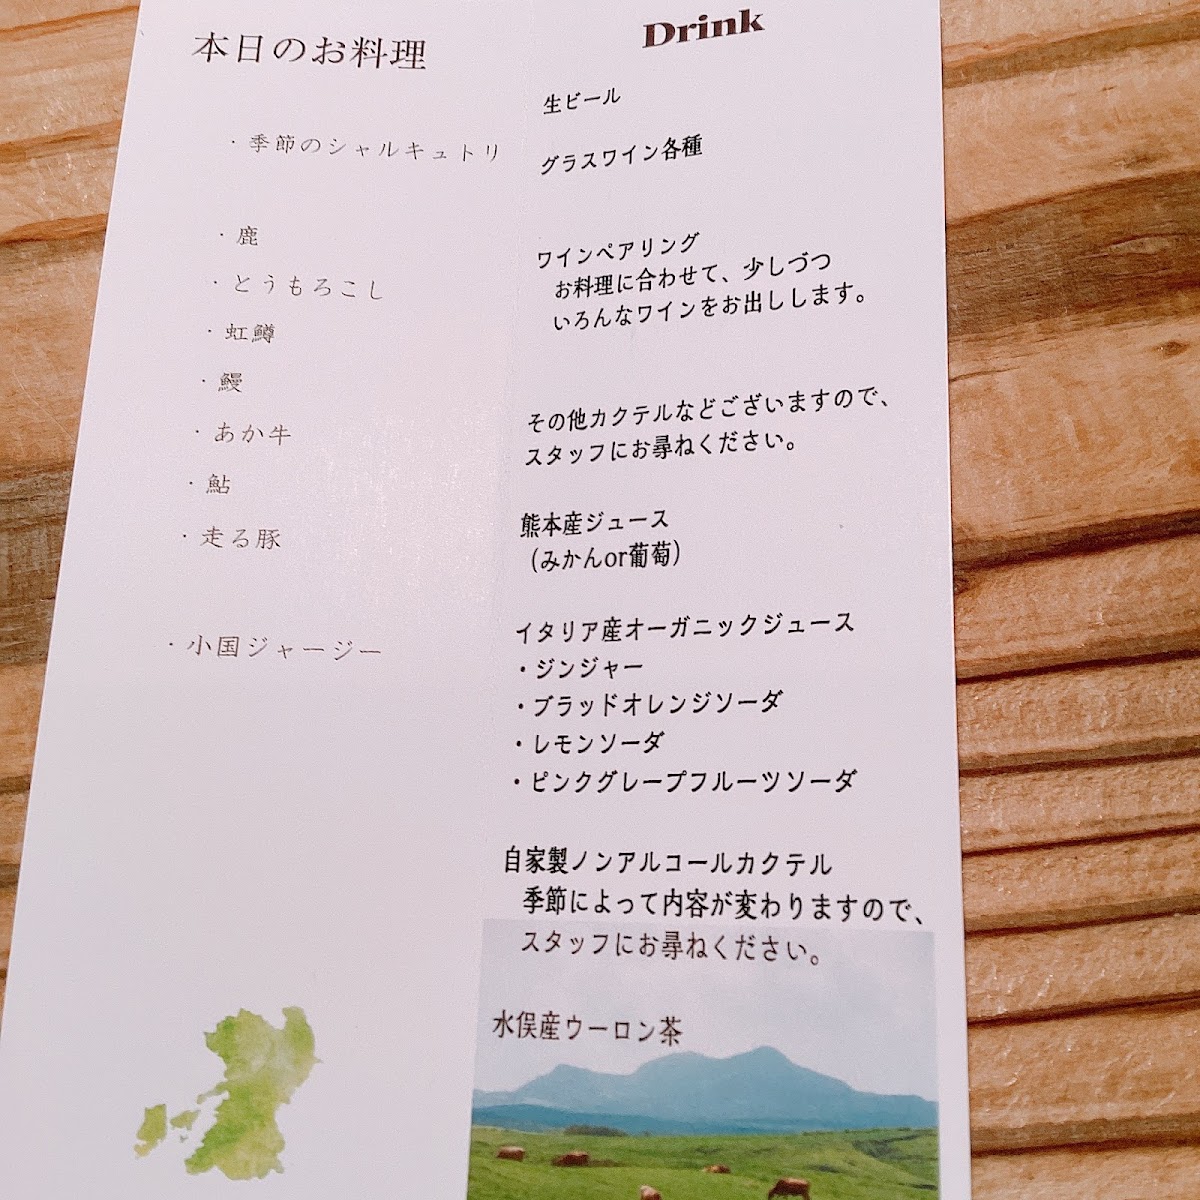 本日のお料理
・季節のシャルキュトリ
・鹿
・とうもろこし
・虹鱒
・鰻
・あか牛
・鮎
・走る豚
・小国ジャージー
Drink
生ビール
グラスワイン各種
ワインペアリング
お料理に合わせて、少しづつ
いろんなワインをお出しします。
その他カクテルなどございますので、
スタッフにお尋ねください。
熊本産ジュース
(みかんor葡萄)
イタリア産オーガニックジュース
・ジンジャー
・ブラッドオレンジソーダ
・レモンソーダ
・ピンクグレープフルーツソーダ
自家製ノンアルコールカクテル
季節によって内容が変わりますので、
スタッフにお尋ねください。
水俣産ウーロン茶